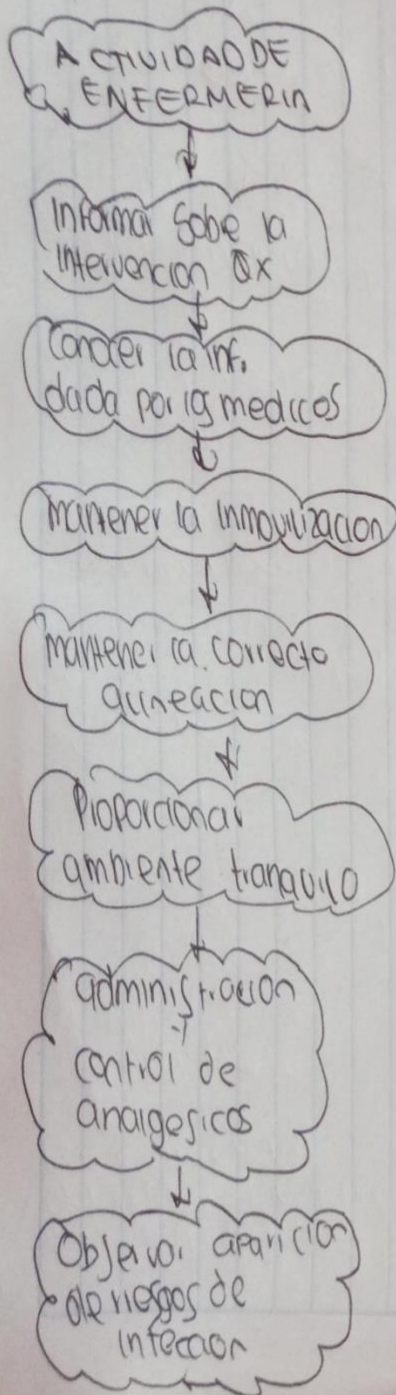 ACTIVIDAD DE
ENFERMERIA
Informar sobe la
intervencion Qx
Conocer la inf.
dada por los medicos
mantener la inmovilizacion
mantener la correcta
alineacion
Proporcionar
ambiente tranquilo
administracion
y
control de
analgesicos
Observar aparicion
de riesgos de
infeccion